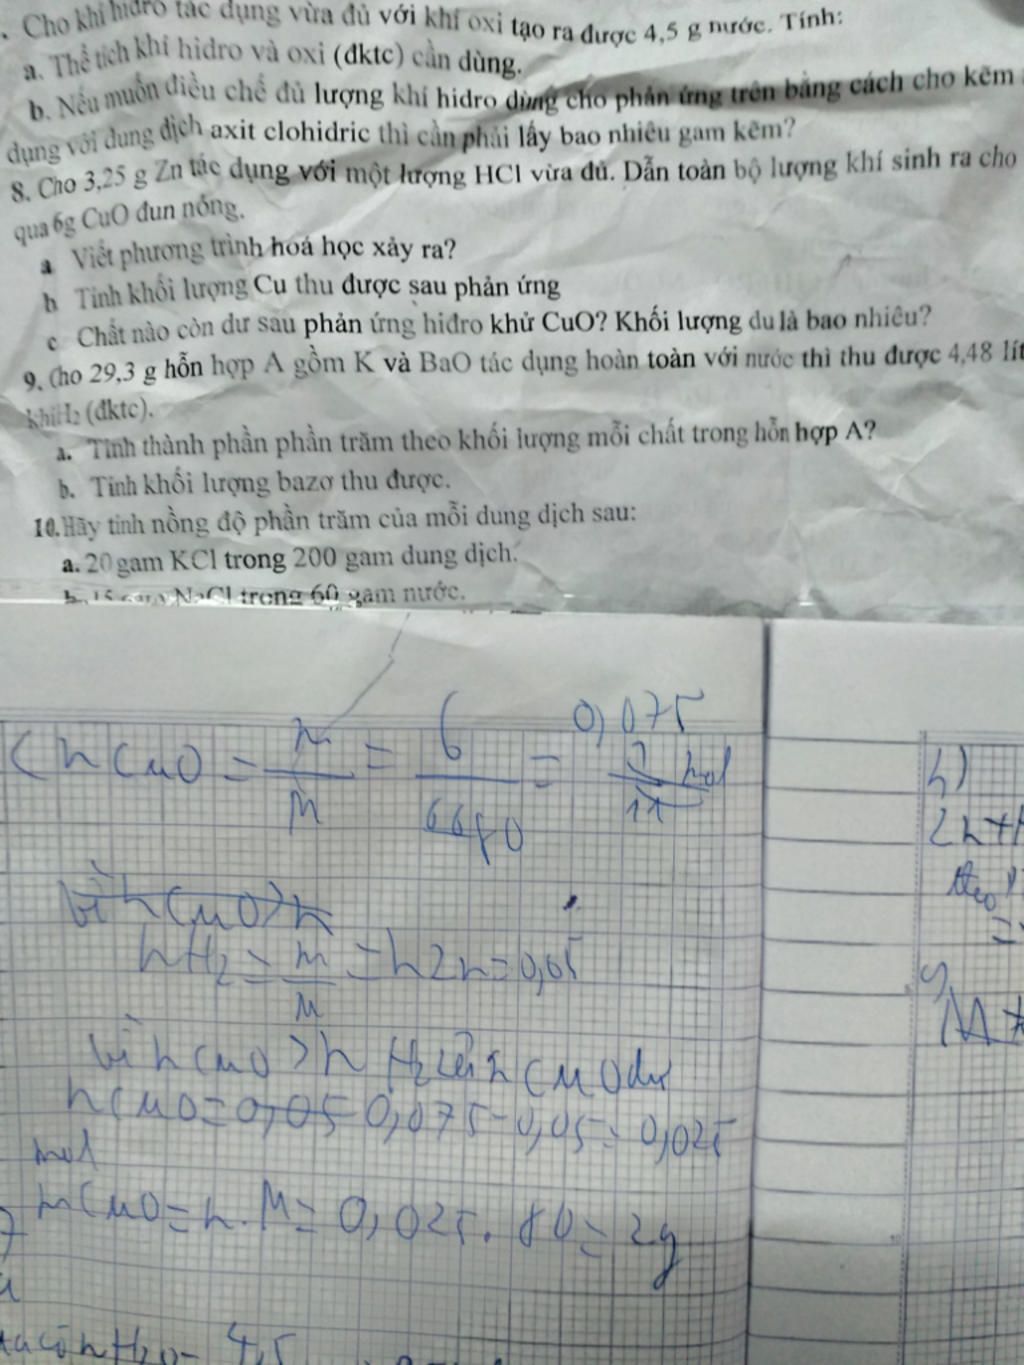 . Cho khí hiđro tác dụng vừa đủ với khí oxi tạo ra được 4,5 g nước. Tính:
a. Thể tích khí hiđro và oxi (đktc) cần dùng.
b. Nếu muốn điều chế đủ lượng khí hidro dùng cho phản ứng trên bằng cách cho kẽm
dụng với dung dịch axit clohidric thì cần phải lấy bao nhiêu gam kẽm?
8. Cho 3,25 g Zn tác dụng với một lượng HCl vừa đủ. Dẫn toàn bộ lượng khí sinh ra cho
qua 6g CuO đun nóng.
a Viết phương trình hoá học xảy ra?
b Tính khối lượng Cu thu được sau phản ứng
c Chất nào còn dư sau phản ứng hiđro khử CuO? Khối lượng dư là bao nhiêu?
9. Cho 29,3 g hỗn hợp A gồm K và BaO tác dụng hoàn toàn với nước thì thu được 4,48 lít
khí H₂ (đktc).
a. Tính thành phần phần trăm theo khối lượng mỗi chất trong hỗn hợp A?
b. Tính khối lượng bazơ thu được.
10. Hãy tính nồng độ phần trăm của mỗi dung dịch sau:
a. 20 gam KCl trong 200 gam dung dịch.
b. 15 gam NaCl trong 60 gam nước.
nCuO = m/M = 6/80 = 0,075 mol
nH₂ = m/M = nZn = 0,05
vì nCuO > nH₂ nên CuO dư
nCuO = 0,075 - 0,05 = 0,025
mol
mCuO = n.M = 0,025.80 = 2g
b)
Zn + H
theo
nH₂O = 4,5